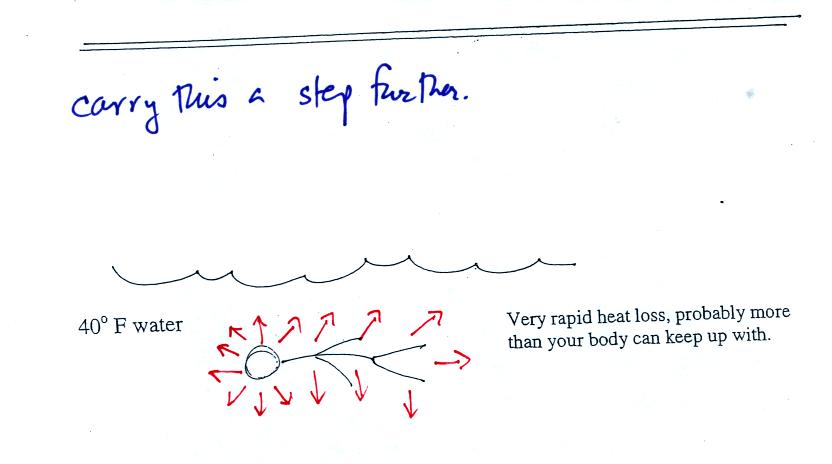 carry this a step further.
40° F water
Very rapid heat loss, probably more
than your body can keep up with.